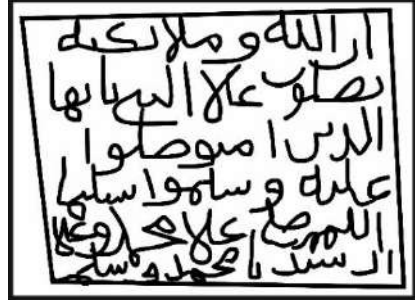 ان الله وملائكته
يصلون علا النبي يا يها
الذين امنو صلوا
عليه وسلموا تسليما
اللهم صل علا محمد وعلا
ا محمد وسلم